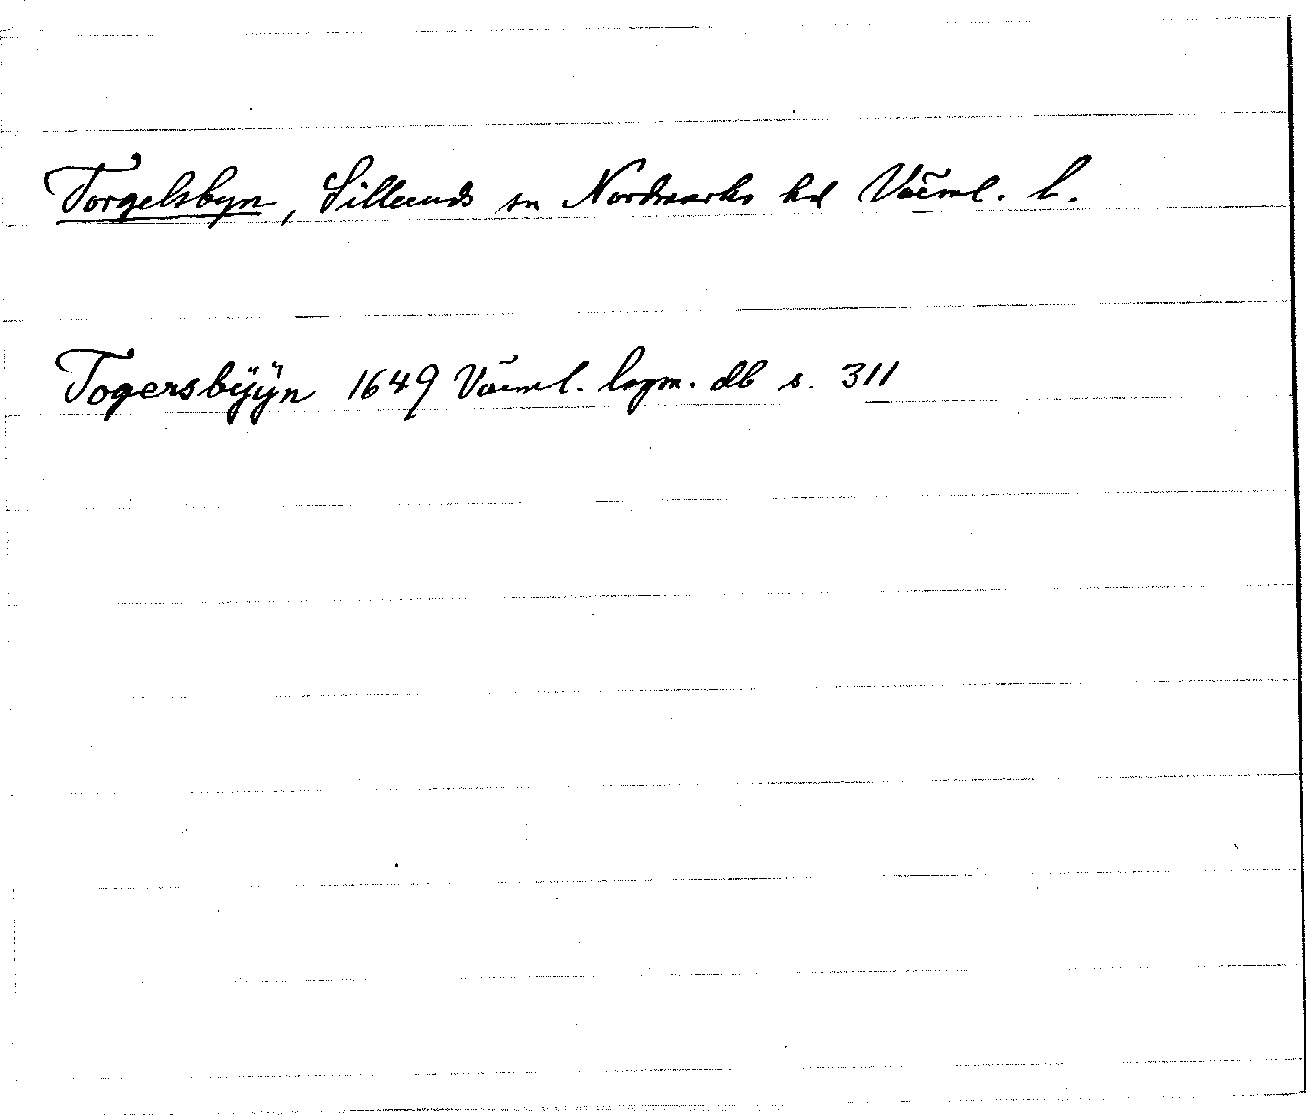 Torgelsbyn, Silleruds sn Nordmarks hd Värml. l.
Togersbÿÿn 1649 Värml. lagm. db s. 311